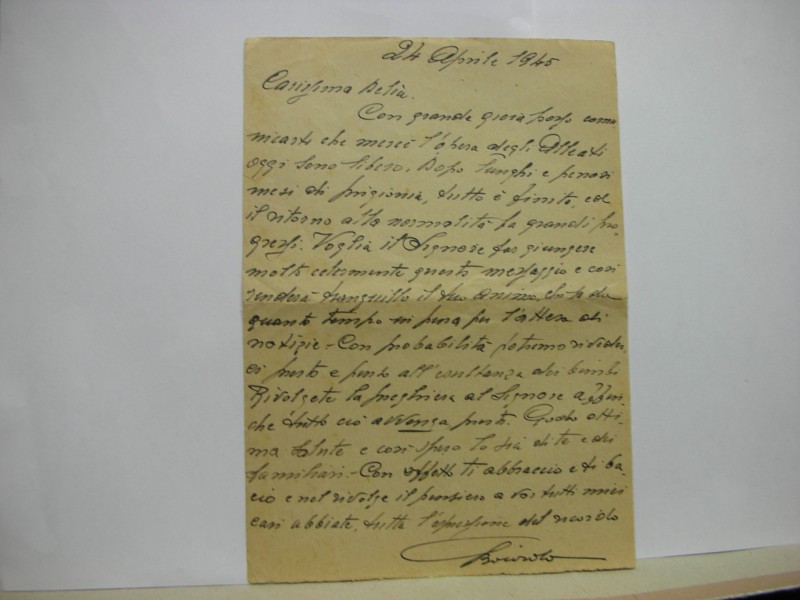 24 Aprile 1945
Carissima Delia.
Con grande gioia posso comu
nicarti che mercè l'opera degli Alleati
oggi sono libero. Dopo lunghi e penosi
mesi di prigionia, tutto è finito, ed
il ritorno alla normalità fa grandi pro
gressi. Voglia il Signore far giungere
molto celermente questo messaggio e così
renderà tranquillo il tuo animo, chi sa da
quanto tempo in pena per l'attesa di
notizie - Con probabilità potremo riveder
ci presto e penso all'esultanza dei bimbi
Rivolgete la preghiera al Signore affin
chè tutto ciò avvenga presto. Godo otti
ma salute e così spero lo sia di te e dei
familiari - Con affetto ti abbraccio e ti ba
cio e nel rivolge il pensiero a voi tutti miei
cari abbiate, tutta l'espressione del ricordo